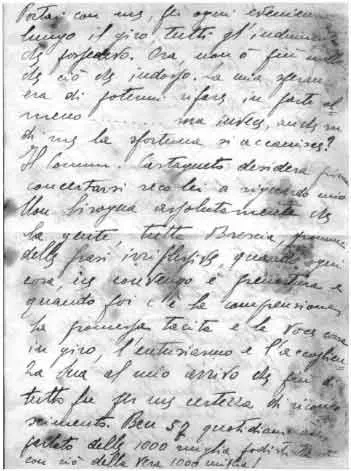 Portai con me, per ogni evenienza
lungo il giro tutti gl'indumenti
che possedevo. Ora, non ò più nulla
di ciò che indosso. La mia speranza
era di potermi rifare in parte al
meno ........ ma invece, anche
di me la sfortuna si accanisce?
Il Comm. Castagneto desidera prima
concertarsi seco lei a riguardo mio
Non bisogna assolutamente che
la gente, tutta Brescia,
delle frasi irriflessive, quando ogni
cosa, ne convengo è prematura e
quando poi c'è la comprensione
la promessa tacita e la voce corsa
in giro, l'entusiasmo e l'accoglien
za qua al mio arrivo che fu di
tutto fu per me certezza di ricono
scimento. Ben 57 quotidiani
parlato delle 1000 miglia
con ciò della vera 1000 miglia